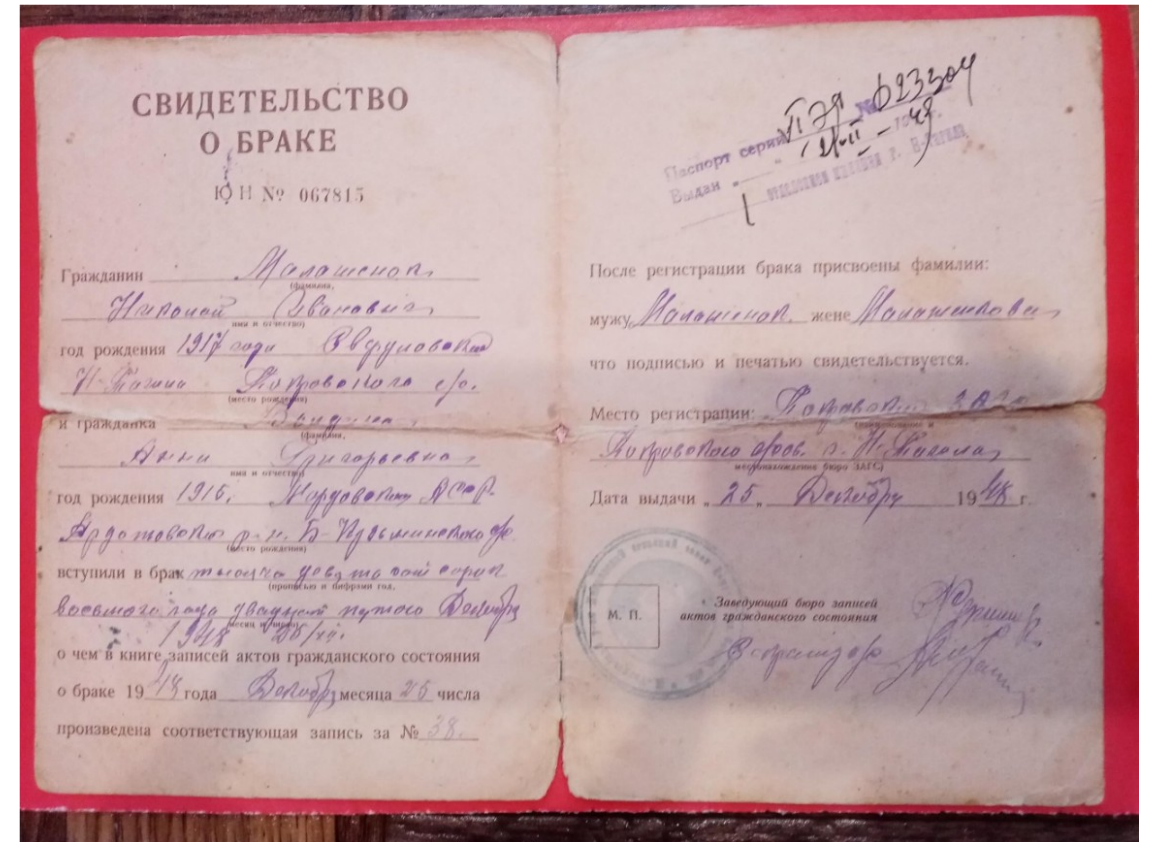 СВИДЕТЕЛЬСТВО
О БРАКЕ
ЮН № 067815
Гражданин Малашенок
(фамилия,
Николай Иванович
имя и отчество)
год рождения 1917 года Свердловской
Н-Тагил Покровского с/с.
(место рождения)
и гражданка
(фамилия,
Анна Григорьевна
имя и отчество)
год рождения 1915. Мордовская АССР.
Ардатовский р-н. Б-Кузьминского с/с
(место рождения)
вступили в брак тысяча девятьсот сорок
(прописью и цифрами год,
восьмого года двадцать пятого Декабря
месяц и число)
1948 25/XII.
о чем в книге записей актов гражданского состояния
о браке 1948 года Декабря месяца 25 числа
произведена соответствующая запись за № 38.
Паспорт серии VI ЭЯ № 623304
Выдан "
отделением милиции г. Н-Тагила
После регистрации брака присвоены фамилии:
мужу Малашенок жене Малашенкова
что подписью и печатью свидетельствуется.
Место регистрации: Покровский ЗАГС
(наименование и
Покровского г. Н-Тагила
местонахождение бюро ЗАГС)
Дата выдачи „ 25 „ Декабря 1948 г.
М. П.
Заведующий бюро записей
актов гражданского состояния
Секретарь